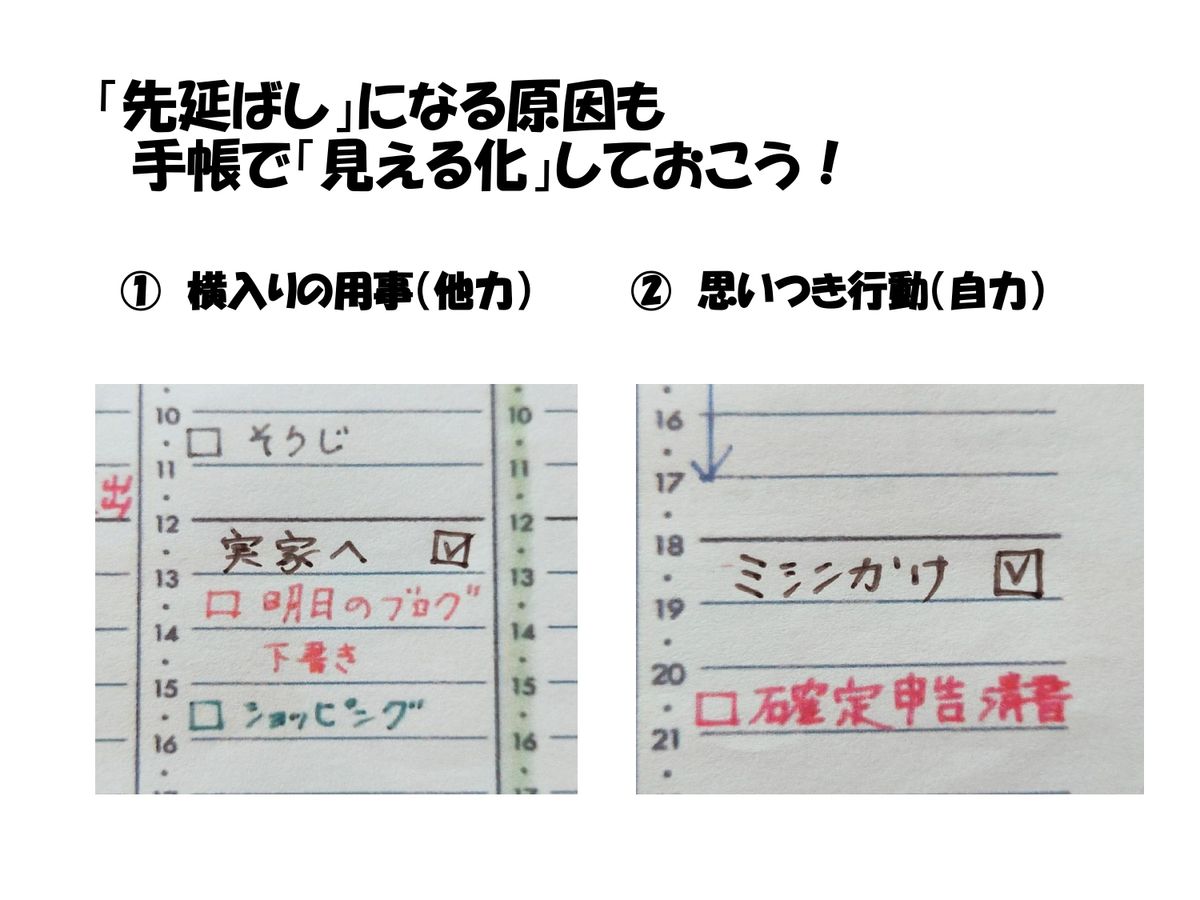 「先延ばし」になる原因も
手帳で「見える化」しておこう！
① 横入りの用事（他力）
② 思いつき行動（自力）
10
□ そうじ
11
12
実家へ ☑
13
□ 明日のブログ
14
下書き
15
□ ショッピング
16
10
11
12
13
14
15
16
16
17
18
ミシンかけ ☑
19
20
□ 確定申告清書
21